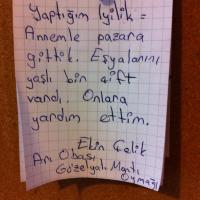 Yaptığım İyilik =
Annemle pazara
gittik. Eşyalarını
yaşlı bir çift
vardı. Onlara
yardım ettim.
Ekin Çelik
Arı Obası
Güzelyalı Martı
Oymağı